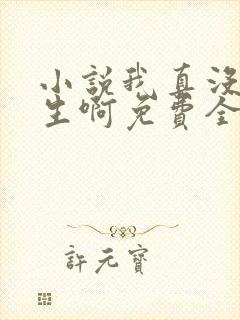 小說我真沒
生啊免費全
許元寶